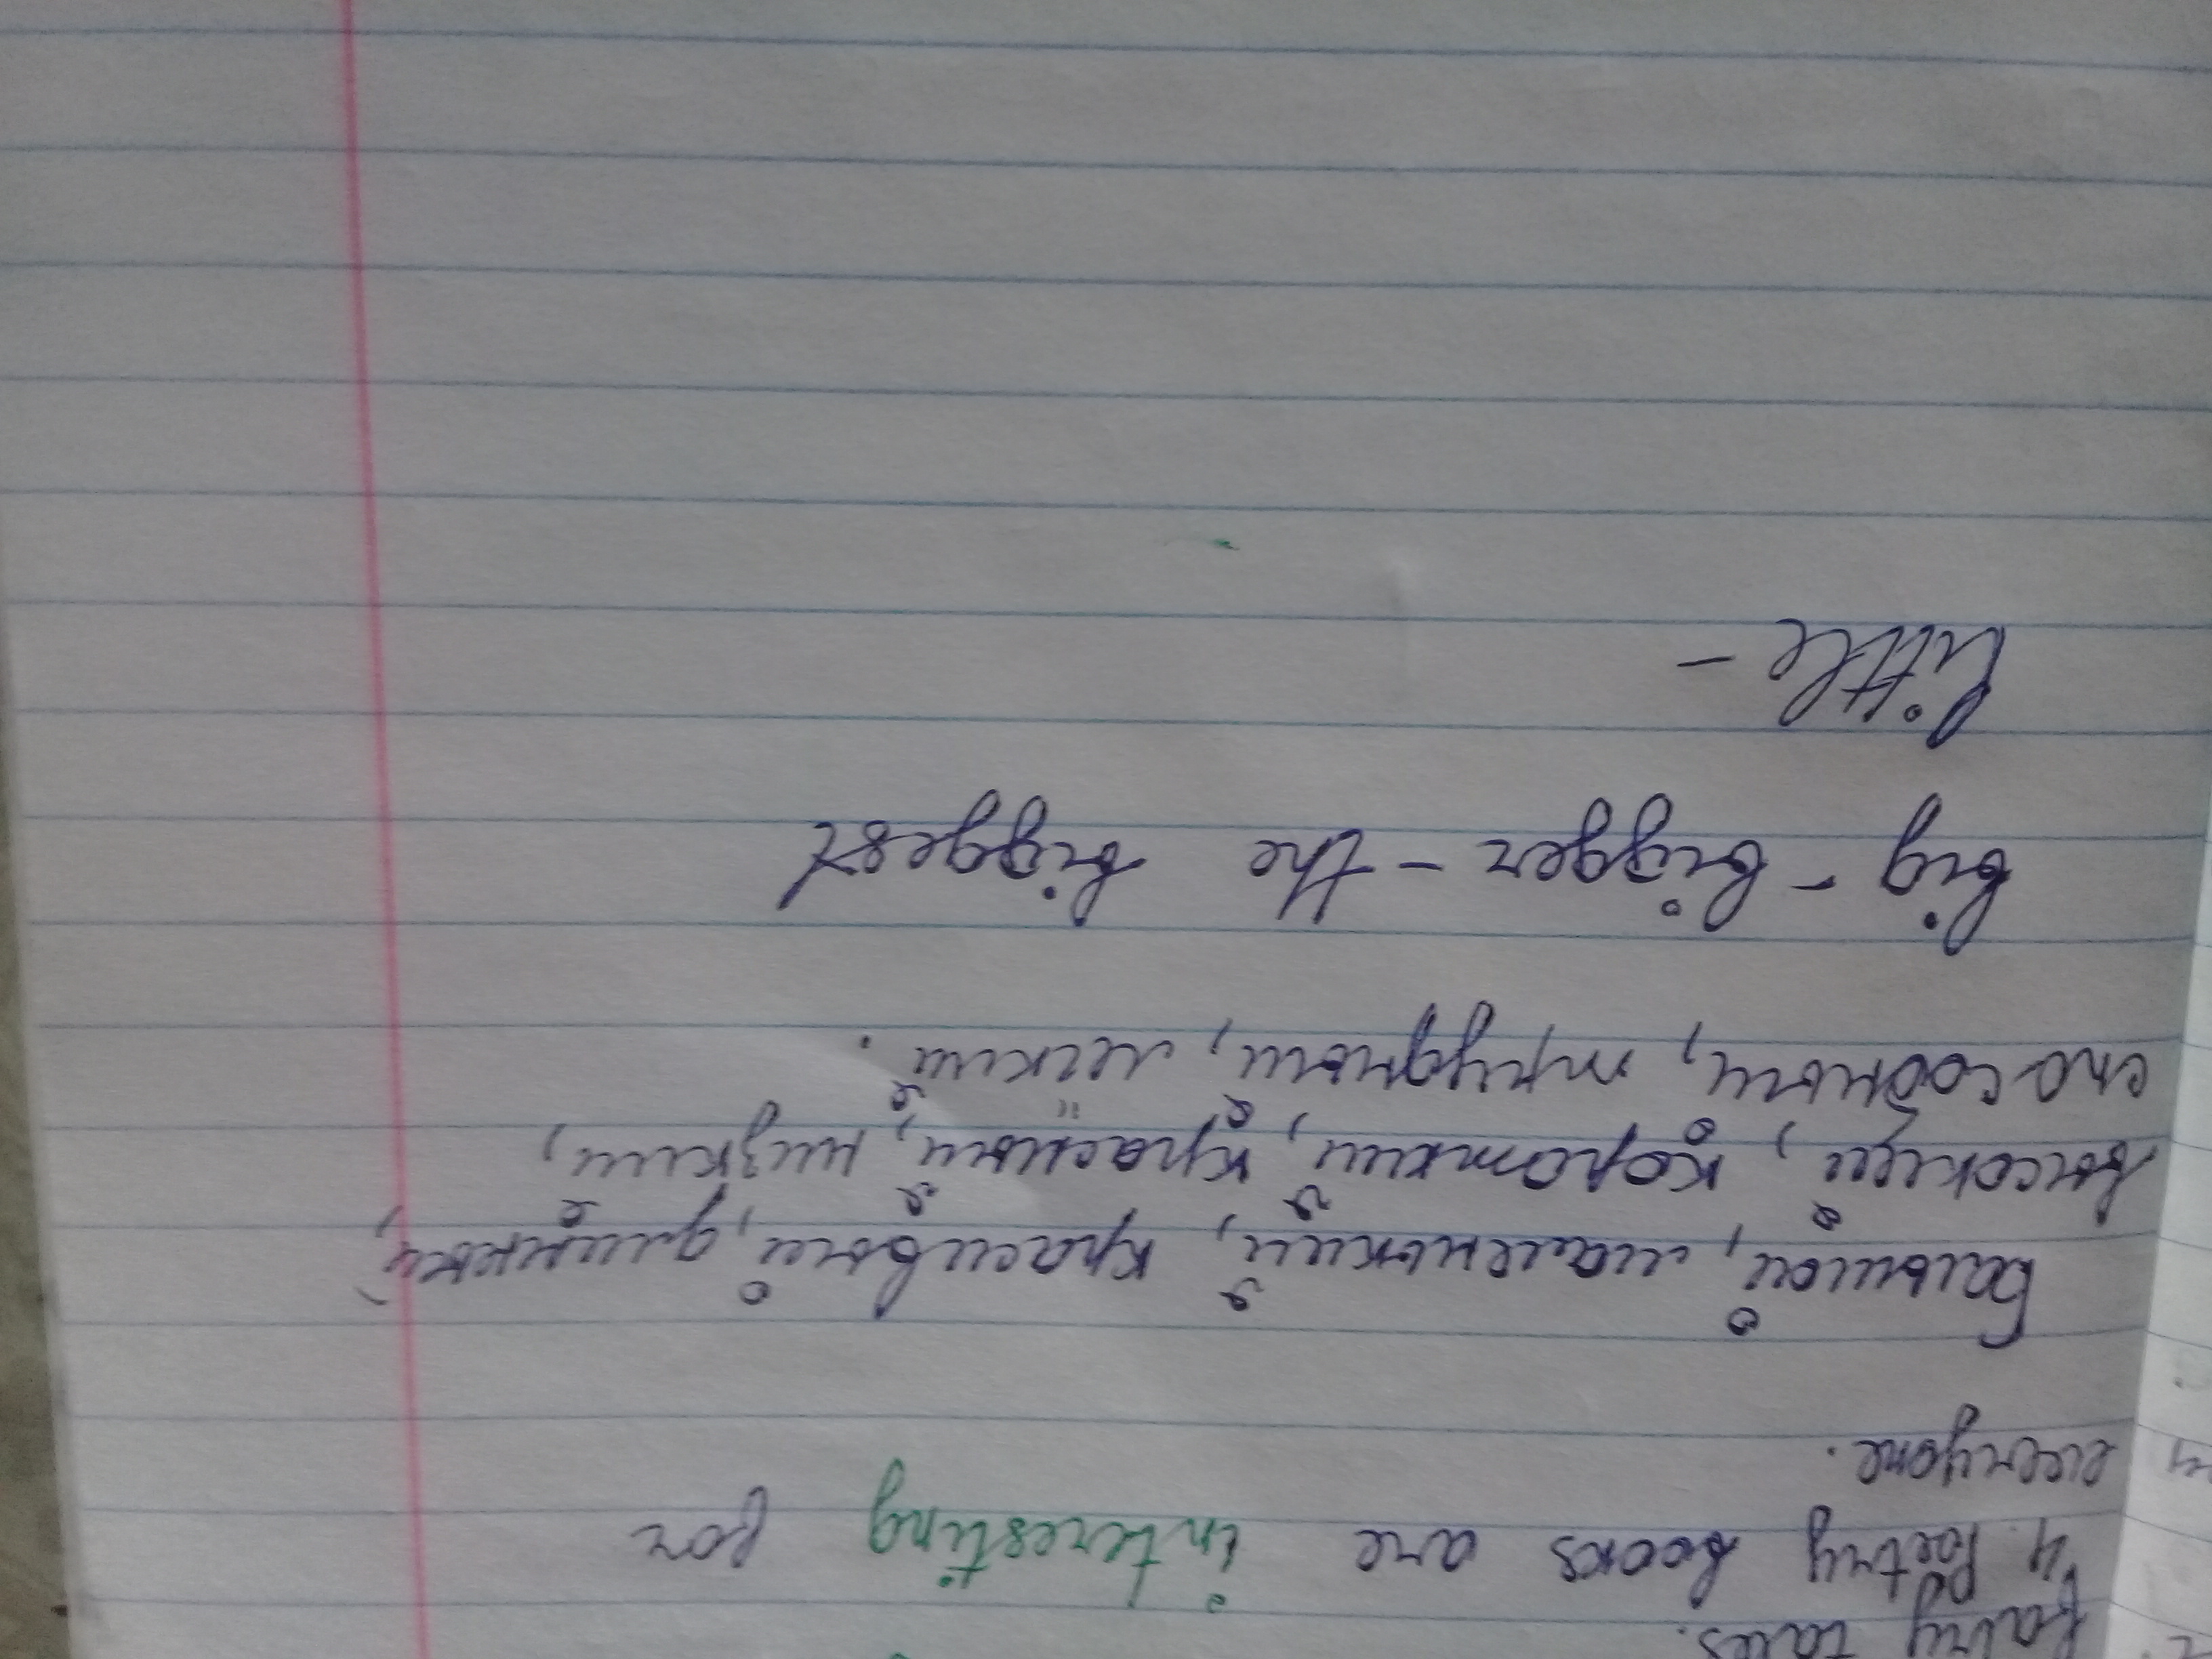 fairy tales.
4. Poetry books are interesting for
everyone.
Большой, маленький, красивый, длинный,
высокий, короткий, красный, низкий,
способный, трудный, легкий.
big - bigger - the biggest
little -